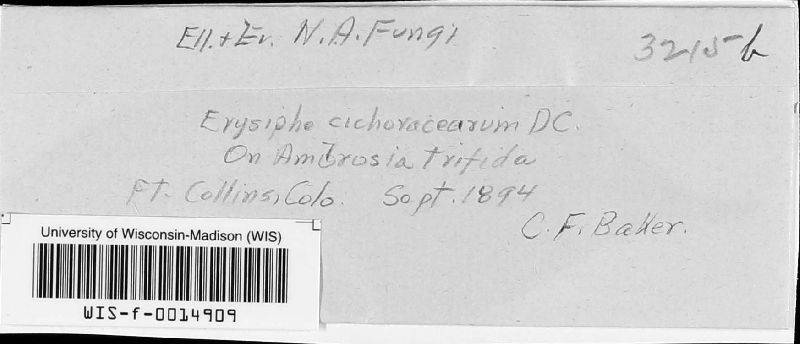 Ell. & Ev. N. A. Fungi
3215b
Erysiphe cichoracearum DC.
On Ambrosia trifida
Ft. Collins, Colo. Sept. 1894
C. F. Baker.
University of Wisconsin-Madison (WIS)
WIS-f-0014909